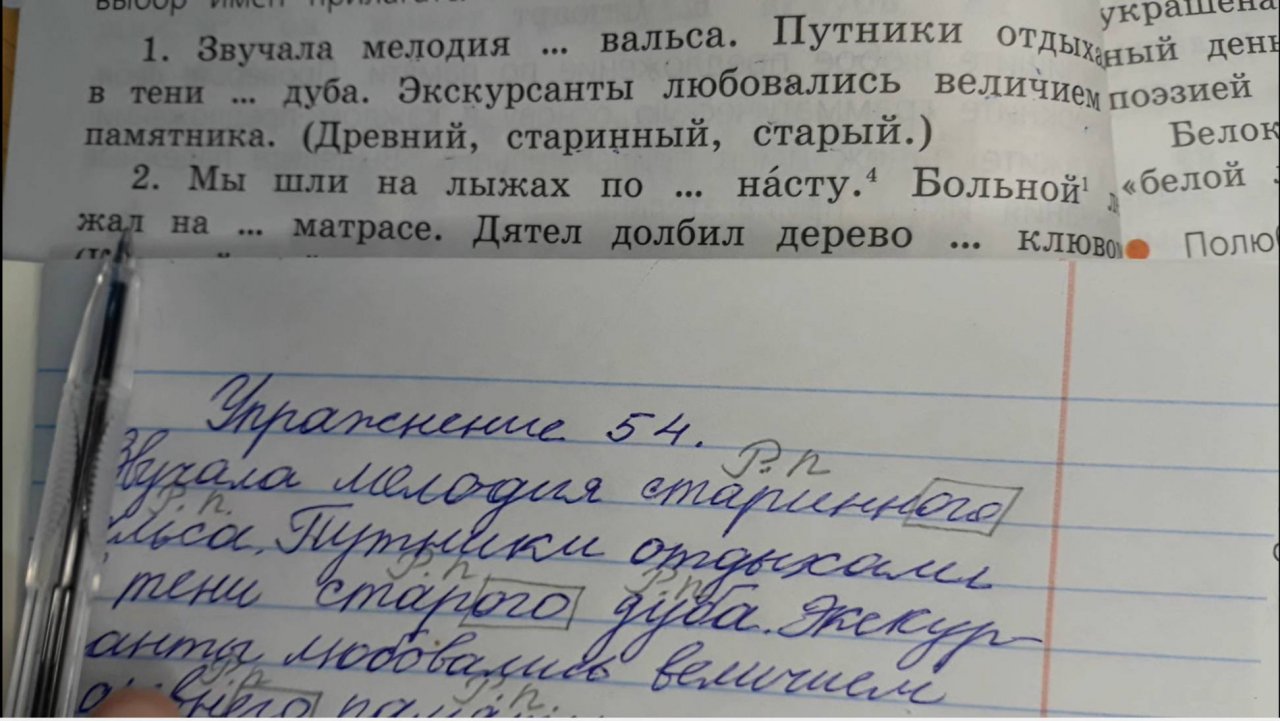 выбор имён прилагат
1. Звучала мелодия ... вальса. Путники отдыха
в тени ... дуба. Экскурсанты любовались величием
памятника. (Древний, старинный, старый.)
2. Мы шли на лыжах по ... на́сту.⁴ Больной¹
жал на ... матрасе. Дятел долбил дерево ... клюво
украшена
ный день
поэзией
Белок
«белой
Полюб
Упражнение 54.
Р. п
Звучала мелодия старинного
Р. п.
льса. Путники отдыхали
Р. п Р. п
тени старого дуба. Экскур-
анты любовались величием
Р. п Р. п.
внего памят